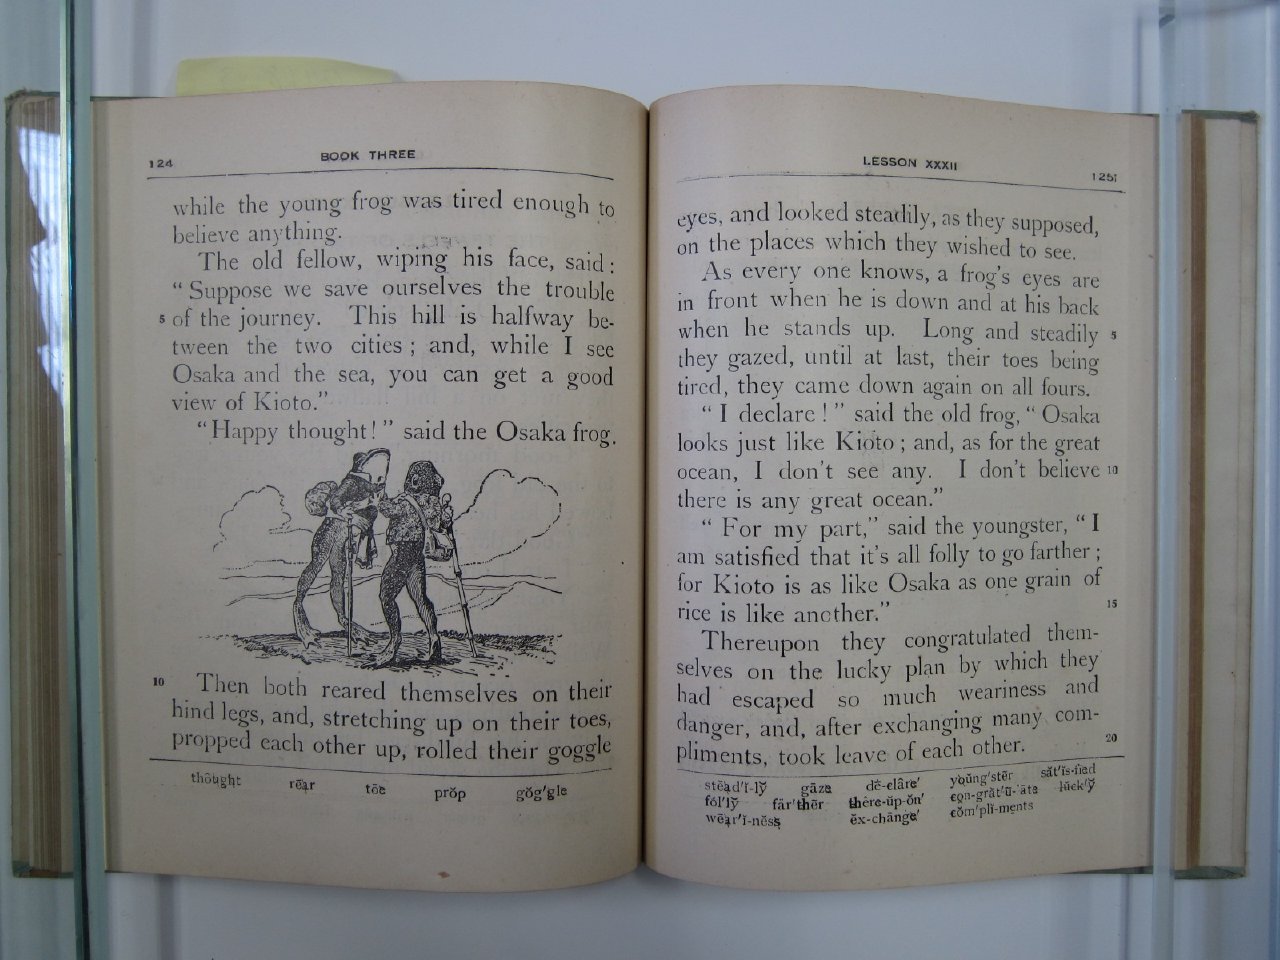 124
BOOK THREE
while the young frog was tired enough to
believe anything.
The old fellow, wiping his face, said:
"Suppose we save ourselves the trouble
5 of the journey. This hill is halfway be-
tween the two cities; and, while I see
Osaka and the sea, you can get a good
view of Kioto."
"Happy thought!" said the Osaka frog.
10 Then both reared themselves on their
hind legs, and, stretching up on their toes,
propped each other up, rolled their goggle
thôught rēar tōe prŏp gŏg'gle
LESSON XXXII
125
eyes, and looked steadily, as they supposed,
on the places which they wished to see.
As every one knows, a frog's eyes are
in front when he is down and at his back
when he stands up. Long and steadily 5
they gazed, until at last, their toes being
tired, they came down again on all fours.
"I declare!" said the old frog, "Osaka
looks just like Kioto; and, as for the great
ocean, I don't see any. I don't believe 10
there is any great ocean."
"For my part," said the youngster, "I
am satisfied that it's all folly to go farther;
for Kioto is as like Osaka as one grain of
rice is like another." 15
Thereupon they congratulated them-
selves on the lucky plan by which they
had escaped so much weariness and
danger, and, after exchanging many com-
pliments, took leave of each other. 20
stĕad'ĭ-lў gāze dē-clâre' yoŭng'stẽr săt'ĭs-fīed
fŏl'lў fär'thẽr thêre-ŭp-ŏn' con-grăt'ū-āte lŭck'ў
wēar'ĭ-nĕss ĕx-chānge' cŏm'plĭ-ments